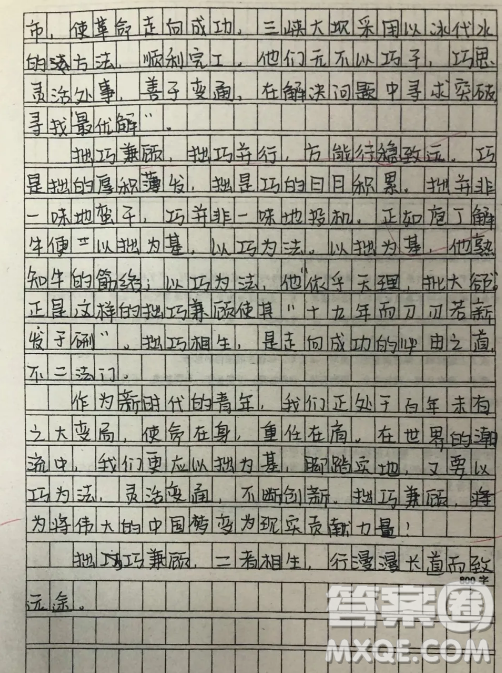 市，使革命走向成功，三峡大坝采用以冰代水
的法方法，顺利完工。他们无不以巧手，巧思
灵活处事，善于变通，在解决问题中寻求突破
寻找“最优解”。
拙巧兼顾，拙巧并行，方能行稳致远。巧
是拙的厚积薄发，拙是巧的日日积累。拙并非
一味地蛮干，巧并非一味地投机。正如庖丁解
牛便以拙为基，以巧为法。以拙为基，他熟
知牛的筋络；以巧为法，他“依乎天理，批大郤”
正是这样的拙巧兼顾使其“十九年而刀刃若新
发于硎”。拙巧相生，是走向成功的必由之道
不二法门。
作为新时代的青年，我们正处于百年未有
之大变局，使命在身，重任在肩。在世界的潮
流中，我们更应以拙为基，脚踏实地，又要以
巧为法，灵活变通，不断创新。拙巧兼顾，将
为将伟大的中国梦变为现实贡献力量！
拙巧兼顾，二者相生，行漫漫长道而致
800字
远途。
答案圈
MXQE.COM